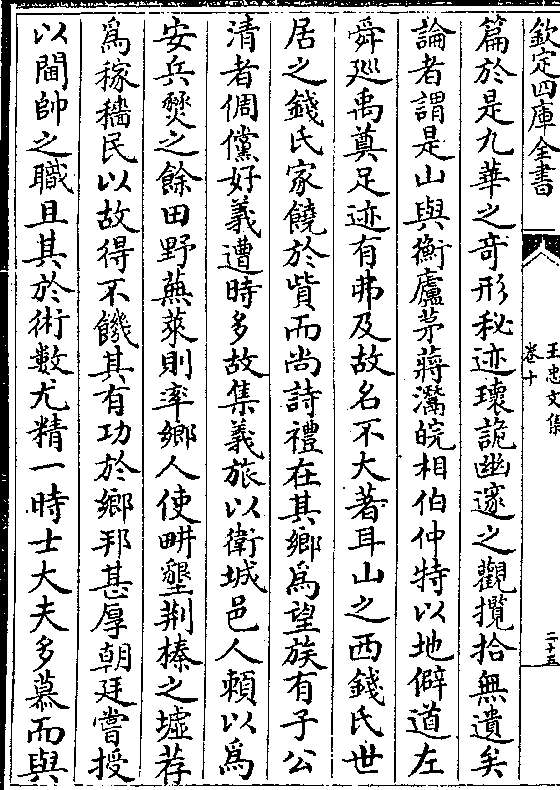 欽定四庫全書
王忠文集
卷十
二十五
篇於是九華之奇形秘迹瓌詭幽邃之觀攬拾無遺矣
論者謂是山與衡廬茅蔣灊皖相伯仲特以地僻道左
舜廵禹奠足迹有弗及故名不大著耳山之西錢氏世
居之錢氏家饒於貲而尚詩禮在其鄉爲望族有子公
清者倜儻好義遭時多故集義旅以衛城邑人頼以爲
安兵燹之餘田野蕪萊則率鄉人使畊墾荆榛之墟荐
爲稼穡民以故得不饑其有功於鄉邦甚厚朝廷嘗授
以閫帥之職且其於術數尤精一時士大夫多慕而與